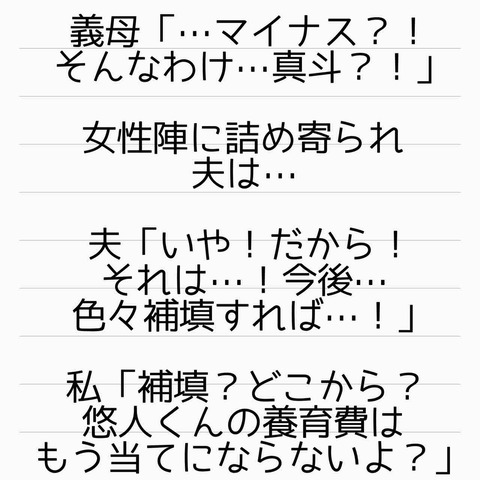 義母「…マイナス?!
そんなわけ…真斗?!」
女性陣に詰め寄られ
夫は…
夫「いや!だから!
それは…!今後…
色々補填すれば…!」
私「補填?どこから?
悠人くんの養育費は
もう当てにならないよ?」